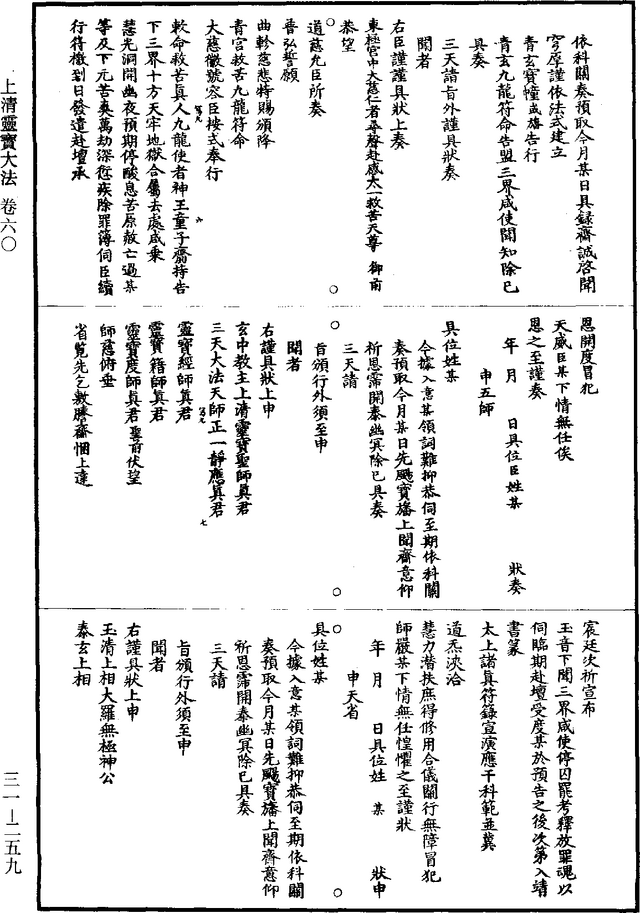 依科關奏預取今月某日具錄齋誠啓聞
穹厚謹依法式建立
青玄寶幢或旛告行
青玄九龍符命告盟三界咸使聞知除已
具奏
三天請旨外謹具狀奏
聞者
右臣謹謹具狀上奏
東極宮中大慈仁者尋聲赴感太一救苦天尊 御前
恭望
道慈允臣所奏
普弘誓願
曲軫慈悲特賜頒降
青宮救苦九龍符命
大慈徽號容臣按式奉行
敕命救苦真人九龍使者神王童子齎持告
下三界十方天牢地獄合屬去處咸乘
慧光洞開幽夜預期停酸息苦原赦亡過某
等及下元苦爽萬劫深愆疾除罪簿伺臣續
行符檄到日發遣赴壇承
恩開度冒犯
天威臣某下情無任俟
恩之至謹奏
年 月 日具位臣姓某 狀奏
申五師
具位姓某
今據入意某領詞難抑恭伺至期依科關
奏預取今月某日先颺寶旛上聞齋意仰
祈恩霈開泰幽冥除已具奏
三天請
旨頒行外須至申
聞者
右謹具狀上申
玄中教主上清靈寶聖師真君
三天大法天師正一靜應真君
靈寶經師真君
靈寶籍師真君
靈寶度師真君聖前伏望
師慈俯垂
省覽先乞敷騰齋悃上達
宸廷次祈宣布
玉音下聞三界咸使停囚罷考釋放罪魂以
伺臨期赴壇受度某於預告之後次第入靖
書篆
太上諸真符籙宣演應干科範並冀
道炁浹洽
慧力潛扶庶得修用合儀關行無障冒犯
師嚴某下情無任惶懼之至謹狀
年 月 日具位姓 某 狀申
申天省
具位姓某
今據入意某領詞難抑恭伺至期依科關
奏預取今月某日先颺寶旛上聞齋意仰
祈恩霈開泰幽冥除已具奏
三天請
旨頒行外須至申
聞者
右謹具狀上申
玉清上相大羅無極神公
泰玄上相
上清靈寶大法 卷六〇
三一—二五九